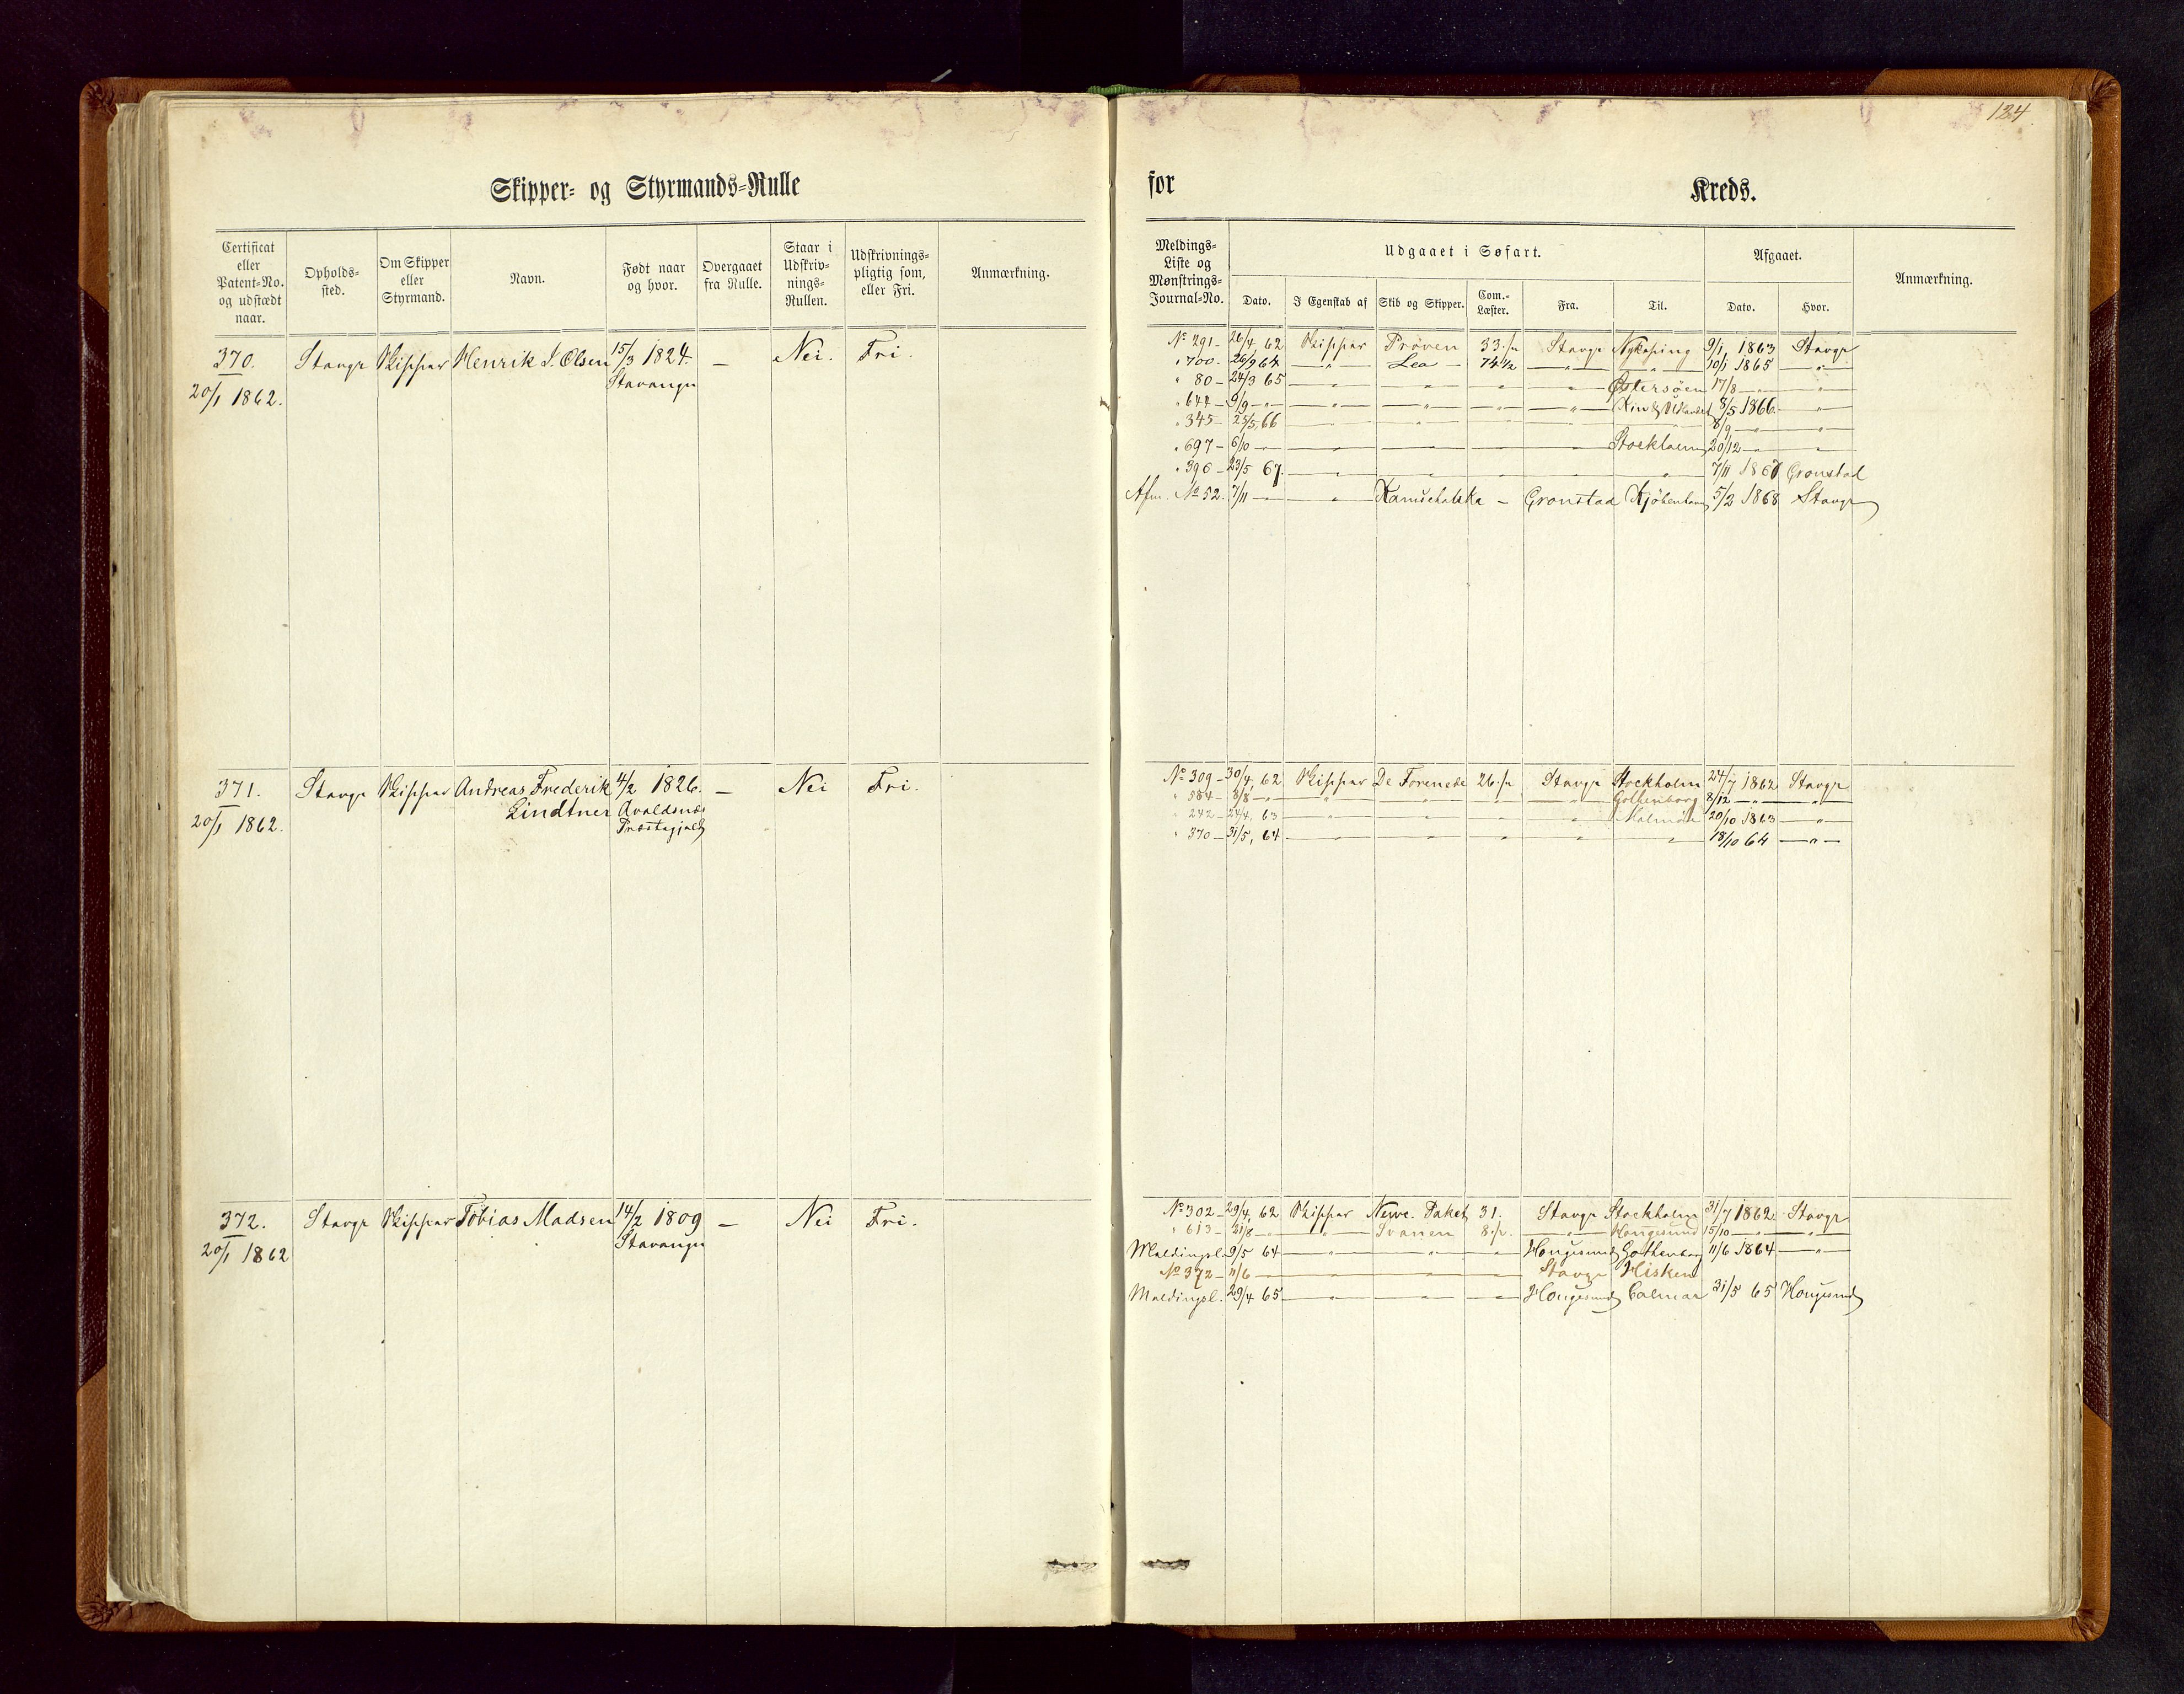 124
Skipper- og Styrmands-Rulle
for Kreds.
Certificat eller Patent-No. og udstædt naar.
Opholds-sted.
Om Skipper eller Styrmand.
Navn.
Født naar og hvor.
Overgaaet fra Rulle.
Staar i Udskriv-nings-Rullen.
Udskrivnings-pligtig som, eller Fri.
Anmærkning.
Meldings-Liste og Mønstrings-Journal-No.
Udgaaet i Søfart.
Dato.
I Egenskab af
Skib og Skipper.
Com.-Læster.
Fra.
Til.
Afgaaet.
Dato.
Hvor.
Anmærkning.
370. Stavgr Skipper Henrik I. Olsen 15/3 1824. — Nei. Fri.
20/1 1862. Stavanger
No 291- 26/4 62 Skipper Prøven 33 Stavgr Nykøping 9/1 1863 Stavgr
" 700- 26/9 64 —"— Lea — 74½ —"— —"— 10/1 1865 —"—
" 80- 24/3 65 —"— —"— —"— —"— Østersøen 17/8 —"— —"—
" 644- 9/9 —"— —"— —"— —"— —"— 8/5 1866 —"—
" 345- 25/5, 66 —"— —"— —"— —"— 8/9 —"— —"—
" 697- 6/10 — — — — — Stockholm 20/12 —"— —"—
" 396- 23/5 67. —"— —"— —"— —"— —"— 7/11 1867 Cronstad
Afm. No 52. 7/11 — —"— Kamschatska — Cronstad Kjøbenhavn 5/2 1868 Stavgr
371. Stavgr Skipper Andreas Frederik 4/2 1826. — Nei Fri.
20/1 1862. Lindtner Avaldsnes
Præstegjeld
No 309- 30/4, 62 Skipper De Forenede 26 Stavgr Stockholm 24/7 1862 Stavgr
" 584- 8/8 —"— —"— —"— —"— —"— Gothenborg 8/12 —"— —"—
" 242- 24/4, 63 —"— —"— —"— —"— Malmøe 20/10 1863 —"—
" 370- 31/5, 64 —"— —"— —"— —"— —"— 18/10 64 —"—
372. Stavgr Skipper Tobias Madsen 14/2 1809 — Nei Fri.
20/1 1862 Stavanger
No 302- 29/4, 62 Skipper Newc. Paket 31. Stavgr Stockholm 31/7 1862 Stavgr
" 613- 21/8 —"— —"— Svanen 8 —"— Hougesund 15/10 —"— —"—
Meldingsl. 9/5 64 —"— —"— —"— Hougesund Gothenborg 11/6 1864 —"—
No 372- 11/6 — —"— —"— —"— Stavgr Hisken
Meldingsl. 29/4 65 —"— —"— —"— Hougesund Calmar 31/5 65 Hougesund